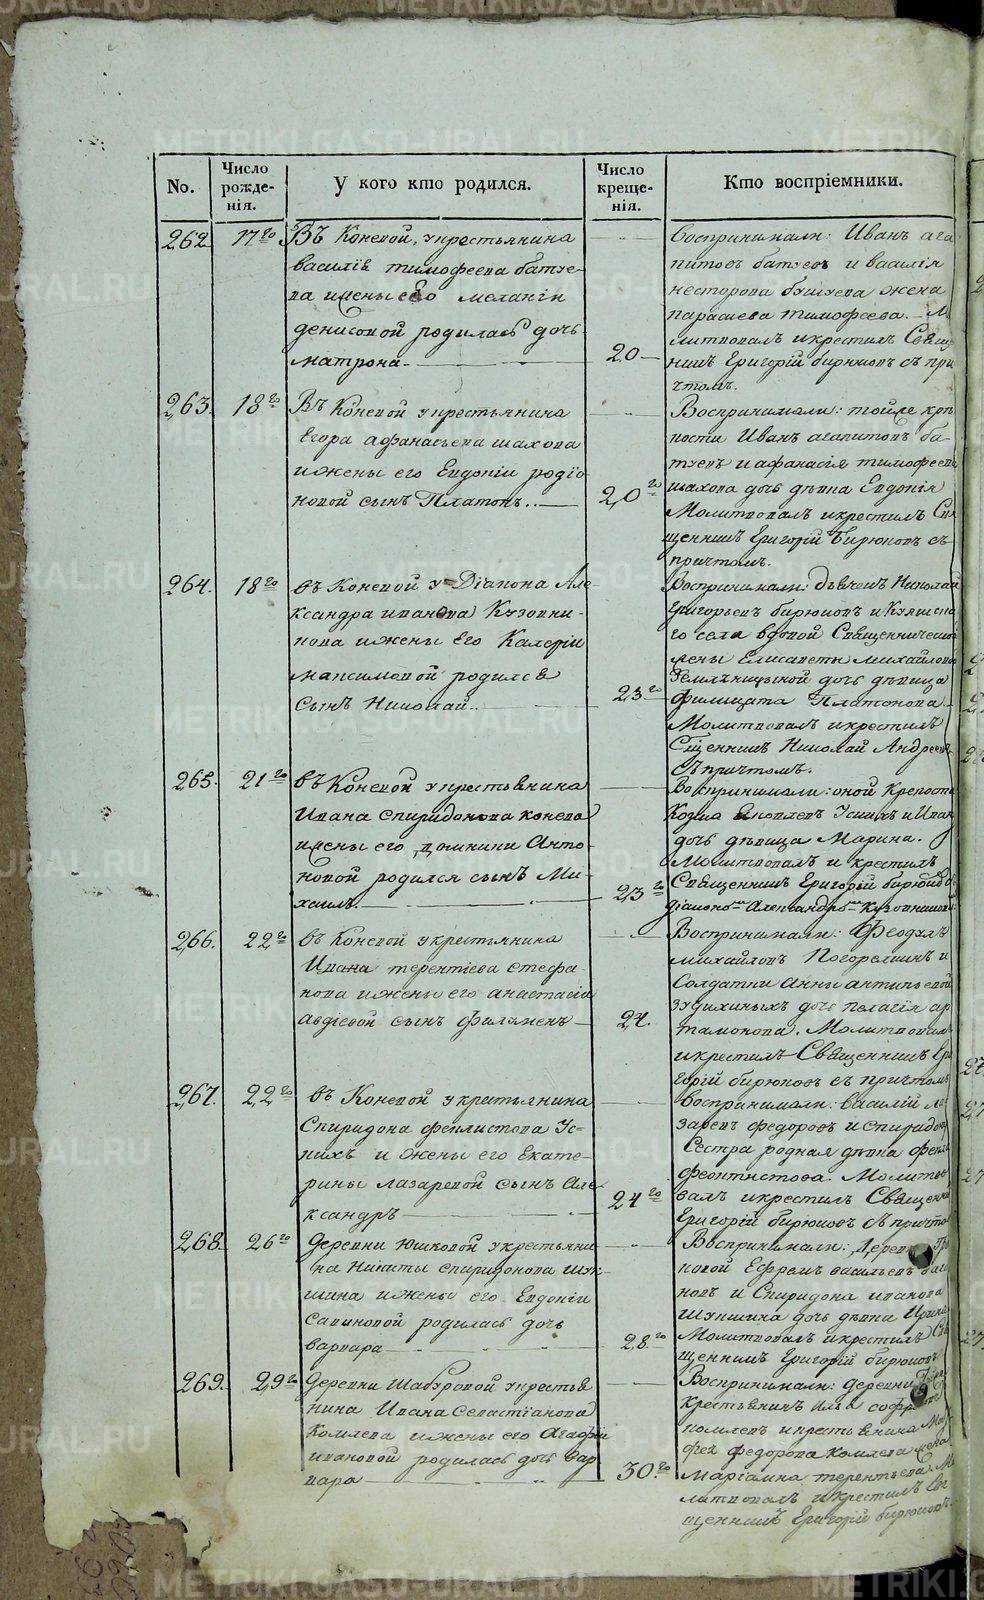 No.
Число рожде- нія.
У кого кто родился.
Число креще- нія.
Кто воспріемники.
262 17го Въ Коневой, у крестьянина
василія тимофеева батуе-
ва и жены его меланіи
денисовой родилась дочь
матрона.
20
Воспринимали: Иванъ ага
питовъ батуевъ и василія
несторова бушуева жена
парасева тимофеева. М
литвовалъ и крестилъ Свящ
нникъ Григорій бирюковъ съ при
чтомъ.
263. 18го Въ Коневой у крестьянина
Егора афанасьева шахова
и жены его Евдокіи родіо
новой сынъ Платонъ.
20го
Воспринимали: тойже крѣ
пости Иванъ агапитовъ ба-
туевъ и афанасія тимофеева
шахова дочь дѣвка Евдокія
Молитвовалъ и крестилъ Свя
щенникъ Григорій Бирюковъ съ
причтомъ.
264. 18го въ Коневой у Діакона Але
ксандра иванова Кузовни-
кова и жены его Калеріи
максимовой родился
сынъ Николай.
23го
Воспринимали: дьячекъ Николай
Григорьевъ бирюковъ и
го села вдовой Священнической
жены Елисаветы михайловой
Земляницыной дочь дѣвица
Филицата Платонова
Молитвовалъ и крестилъ
Сщенникъ Николай Андреевъ
Съ причтомъ.
265. 21го въ Коневой у крестьянина
Ивана спиридонова конева
и жены его домники Анто-
новой родился сынъ Ми-
хаилъ.
23го
Воспринимали: оной крепости
Козма Яковлевъ и Иван
дочь дѣвица Марина.
Молитвовалъ и крестилъ
Священникъ Григорій бирюковъ
діакономъ Александромъ Кузовниковымъ
266. 22го въ Коневой у крестьянина
Ивана терентіева стефа-
нова и жены его анастасіи
авдіевой сынъ филимонъ
24.
Воспринимали: Феодулъ
михайловъ Погорелкинъ и
Солдатки Анны антипьевой
дочь пелагія ар
тамонова. Молитвовалъ
и крестилъ Священникъ Гри
горій бирюковъ съ причтомъ
267. 22го въ Коневой у кретьянина
Спиридона феклистова Ус-
кихъ и жены его Екате-
рины лазаревой сынъ Але-
ксандръ
24го
Воспринимали: василій ла
заревъ федоровъ и спиридона
Сестра родная дѣвка
феоктистова. Молитво
валъ и крестилъ Священни
Григорій бирюковъ съ причто
268. 26го Деревни Юшковой у крестьяни-
на Никиты спиридонова Шук-
шина и жены его Евдокіи
савиновой родилась дочь
варвара
28.го
Воспринимали: Деревни
ковой Ефремъ васильевъ
новъ и Спиридона иванова
Шукшина дочь дѣвка Ирина
Молитвовалъ и крестилъ Свя
щенникъ Григорій бирюковъ
269. 29го Деревни Шабуровой у крестья
нина Ивана Севастіанова
Комлева и жены его Агафіи
ивановой родилась дочь вар
вара
30.го
Воспринимали: деревни
крестьянинъ
комлевъ и крестьянина
фея федорова Комлева жена
Маріамна терентьева. Мо
литвовалъ и крестилъ Свя
щенникъ Григорій бирюковъ.
METRIKI.GASO-URAL.RU